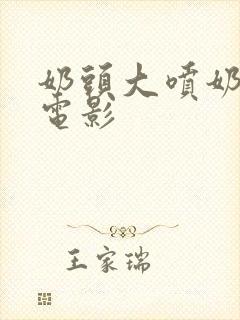 奶頭大噴奶
電影
王家瑞